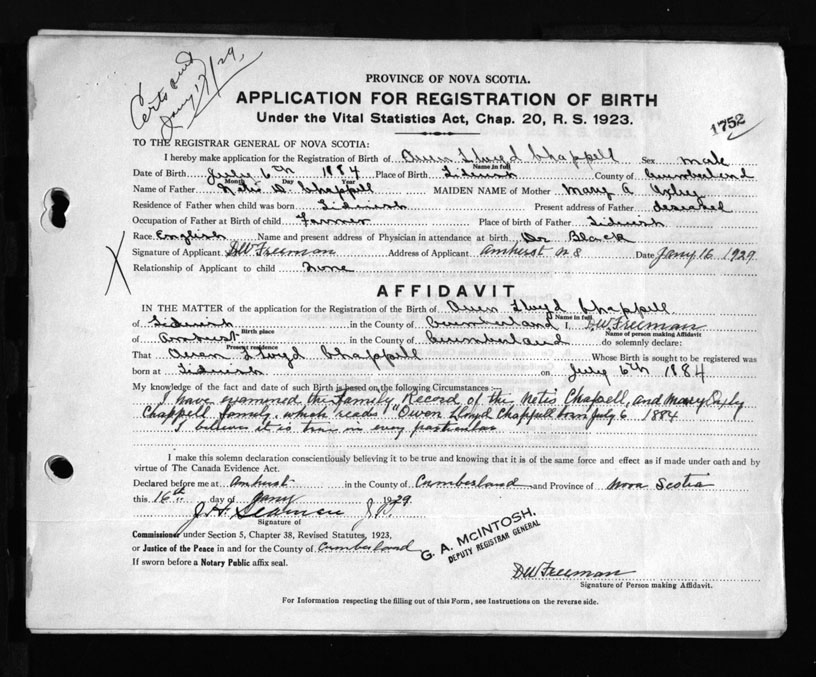 Certs and
Jany 17/29
PROVINCE OF NOVA SCOTIA.
APPLICATION FOR REGISTRATION OF BIRTH
Under the Vital Statistics Act, Chap. 20, R. S. 1923.
1752
TO THE REGISTRAR GENERAL OF NOVA SCOTIA:
I hereby make application for the Registration of Birth of Owen Lloyd Chappell Sex Male
Name in full
Date of Birth July 6th 1884 Place of Birth Tidnish County of Cumberland
Month Day Year
Name of Father Chappell MAIDEN NAME of Mother Mary A Oxley
Residence of Father when child was born Tidnish Present address of Father deceased
Occupation of Father at Birth of child Farmer Place of birth of Father Tidnish
Race English Name and present address of Physician in attendance at birth Dr Black
Signature of Applicant DW Freeman Address of Applicant Amherst N S Date Jany 16 1929
Relationship of Applicant to child None
X
AFFIDAVIT
IN THE MATTER of the application for the Registration of the Birth of Owen Lloyd Chappell
Name in full
of Tidnish in the County of Cumberland I, DW Freeman
Birth place Name of person making Affidavit
of Amherst in the County of Cumberland do solemnly declare:
Present residence
That Owen Lloyd Chappell Whose Birth is sought to be registered was
born at Tidnish on July 6th 1884
My knowledge of the fact and date of such Birth is based on the following Circumstances:
I have examined the Family Record of the Chappell, and Mary Oxley
Chappell family, which reads "Owen Lloyd Chappell born July 6 1884
I believe it is true in every particular
I make this solemn declaration conscientiously believing it to be true and knowing that it is of the same force and effect as if made under oath and by
virtue of The Canada Evidence Act.
Declared before me at Amherst in the County of Cumberland and Province of Nova Scotia
this 16th day of Jany 1929
J.H. Seaman J.P.
Signature of
Commissioner under Section 5, Chapter 38, Revised Statutes, 1923,
or Justice of the Peace in and for the County of Cumberland
If sworn before a Notary Public affix seal.
G. A. McINTOSH,
DEPUTY REGISTRAR GENERAL
DW Freeman
Signature of Person making Affidavit.
For Information respecting the filling out of this Form, see Instructions on the reverse side.